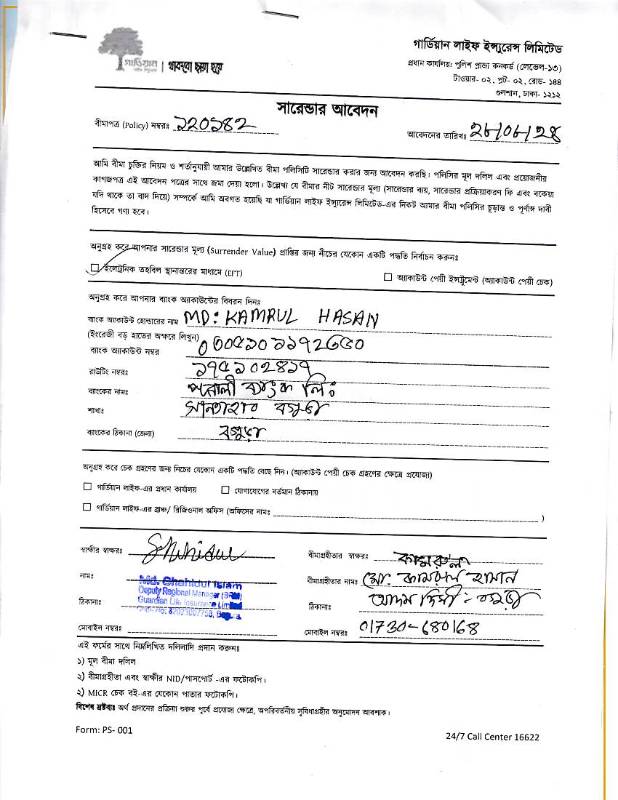 গার্ডিয়ান লাইফ ইন্স্যুরেন্স লিমিটেড
গার্ডিয়ান | থাকবো ছায়া হয়ে
প্রধান কার্যালয়: পুলিশ প্লাজা কনকর্ড (লেভেল-১৩)
টাওয়ার- ০২, প্লট- ০২, রোড- ১৪৪
গুলশান, ঢাকা- ১২১২
সারেন্ডার আবেদন
বীমাপত্র (Policy) নম্বরঃ ১২০১৪২
আবেদনের তারিখঃ
আমি বীমা চুক্তির নিয়ম ও শর্তানুযায়ী আমার উল্লেখিত বীমা পলিসিটি সারেন্ডার করার জন্য আবেদন করছি। পলিসির মূল দলিল এবং প্রয়োজনীয়
কাগজপত্র এই আবেদন পত্রের সাথে জমা দেয়া হলো। উল্লেখ্য যে বীমার নীট সারেন্ডার মূল্য (সারেন্ডার ব্যয়, সারেন্ডার প্রক্রিয়াকরণ ফি এবং বকেয়া
যদি থাকে তা বাদ দিয়ে) সম্পর্কে আমি অবগত হয়েছি যা গার্ডিয়ান লাইফ ইন্স্যুরেন্স লিমিটেড-এর নিকট আমার বীমা পলিসির চূড়ান্ত ও পূর্ণাঙ্গ দাবী
হিসেবে গণ্য হবে।
অনুগ্রহ করে আপনার সারেন্ডার মূল্য (Surrender Value) প্রাপ্তির জন্য নীচের যেকোন একটি পদ্ধতি নির্বাচন করুনঃ
ইলেক্ট্রনিক তহবিল স্থানান্তরের মাধ্যমে (EFT)
অ্যাকাউন্ট পেয়ী ইন্সট্রুমেন্ট (অ্যাকাউন্ট পেয়ী চেক)
অনুগ্রহ করে আপনার ব্যাংক অ্যাকাউন্টের বিবরন দিনঃ
ব্যাংক অ্যাকাউন্ট হোল্ডারের নাম MD: KAMRUL HASAN
(ইংরেজী বড় হাতের অক্ষরে লিখুন)
ব্যাংক অ্যাকাউন্ট নম্বর
রাউটিং নম্বরঃ
ব্যাংকের নামঃ রূপালী ব্যাংক লিঃ
শাখাঃ সান্তাহার বগুড়া
ব্যাংকের ঠিকানা (জেলা) বগুড়া
অনুগ্রহ করে চেক গ্রহণের জন্য নিচের যেকোন একটি পদ্ধতি বেছে নিন। (অ্যাকাউন্ট পেয়ী চেক গ্রহণের ক্ষেত্রে প্রযোজ্য)
গার্ডিয়ান লাইফ-এর প্রধান কার্যালয়
যোগাযোগের বর্তমান ঠিকানায়
গার্ডিয়ান লাইফ-এর ব্রাঞ্চ/ রিজিওনাল অফিস (অফিসের নামঃ )
স্বাক্ষীর স্বাক্ষরঃ
বীমাগ্রহীতার স্বাক্ষরঃ কামরুল
নামঃ Md. Shahidul Islam
বীমাগ্রহীতার নামঃ মোঃ কামরুল হাসান
Deputy Regional Manager
Guardian Life Insurance Limited
ঠিকানাঃ
ঠিকানাঃ আদম দিঘী - বগুড়া
মোবাইল নম্বরঃ
মোবাইল নম্বরঃ 01730-680168
এই ফর্মের সাথে নিম্নলিখিত দলিলাদি প্রদান করুনঃ
১) মূল বীমা দলিল
২) বীমাগ্রহীতা এবং স্বাক্ষীর NID/পাসপোর্ট -এর ফটোকপি।
২) MICR চেক বই-এর যেকোন পাতার ফটোকপি।
বিশেষ দ্রষ্টব্যঃ অর্থ প্রদানের প্রক্রিয়া শুরুর পূর্বে প্রযোজ্য ক্ষেত্রে, অপরিবর্তনীয় সুবিধাগ্রহীর অনুমোদন আবশ্যক।
Form: PS- 001
24/7 Call Center 16622